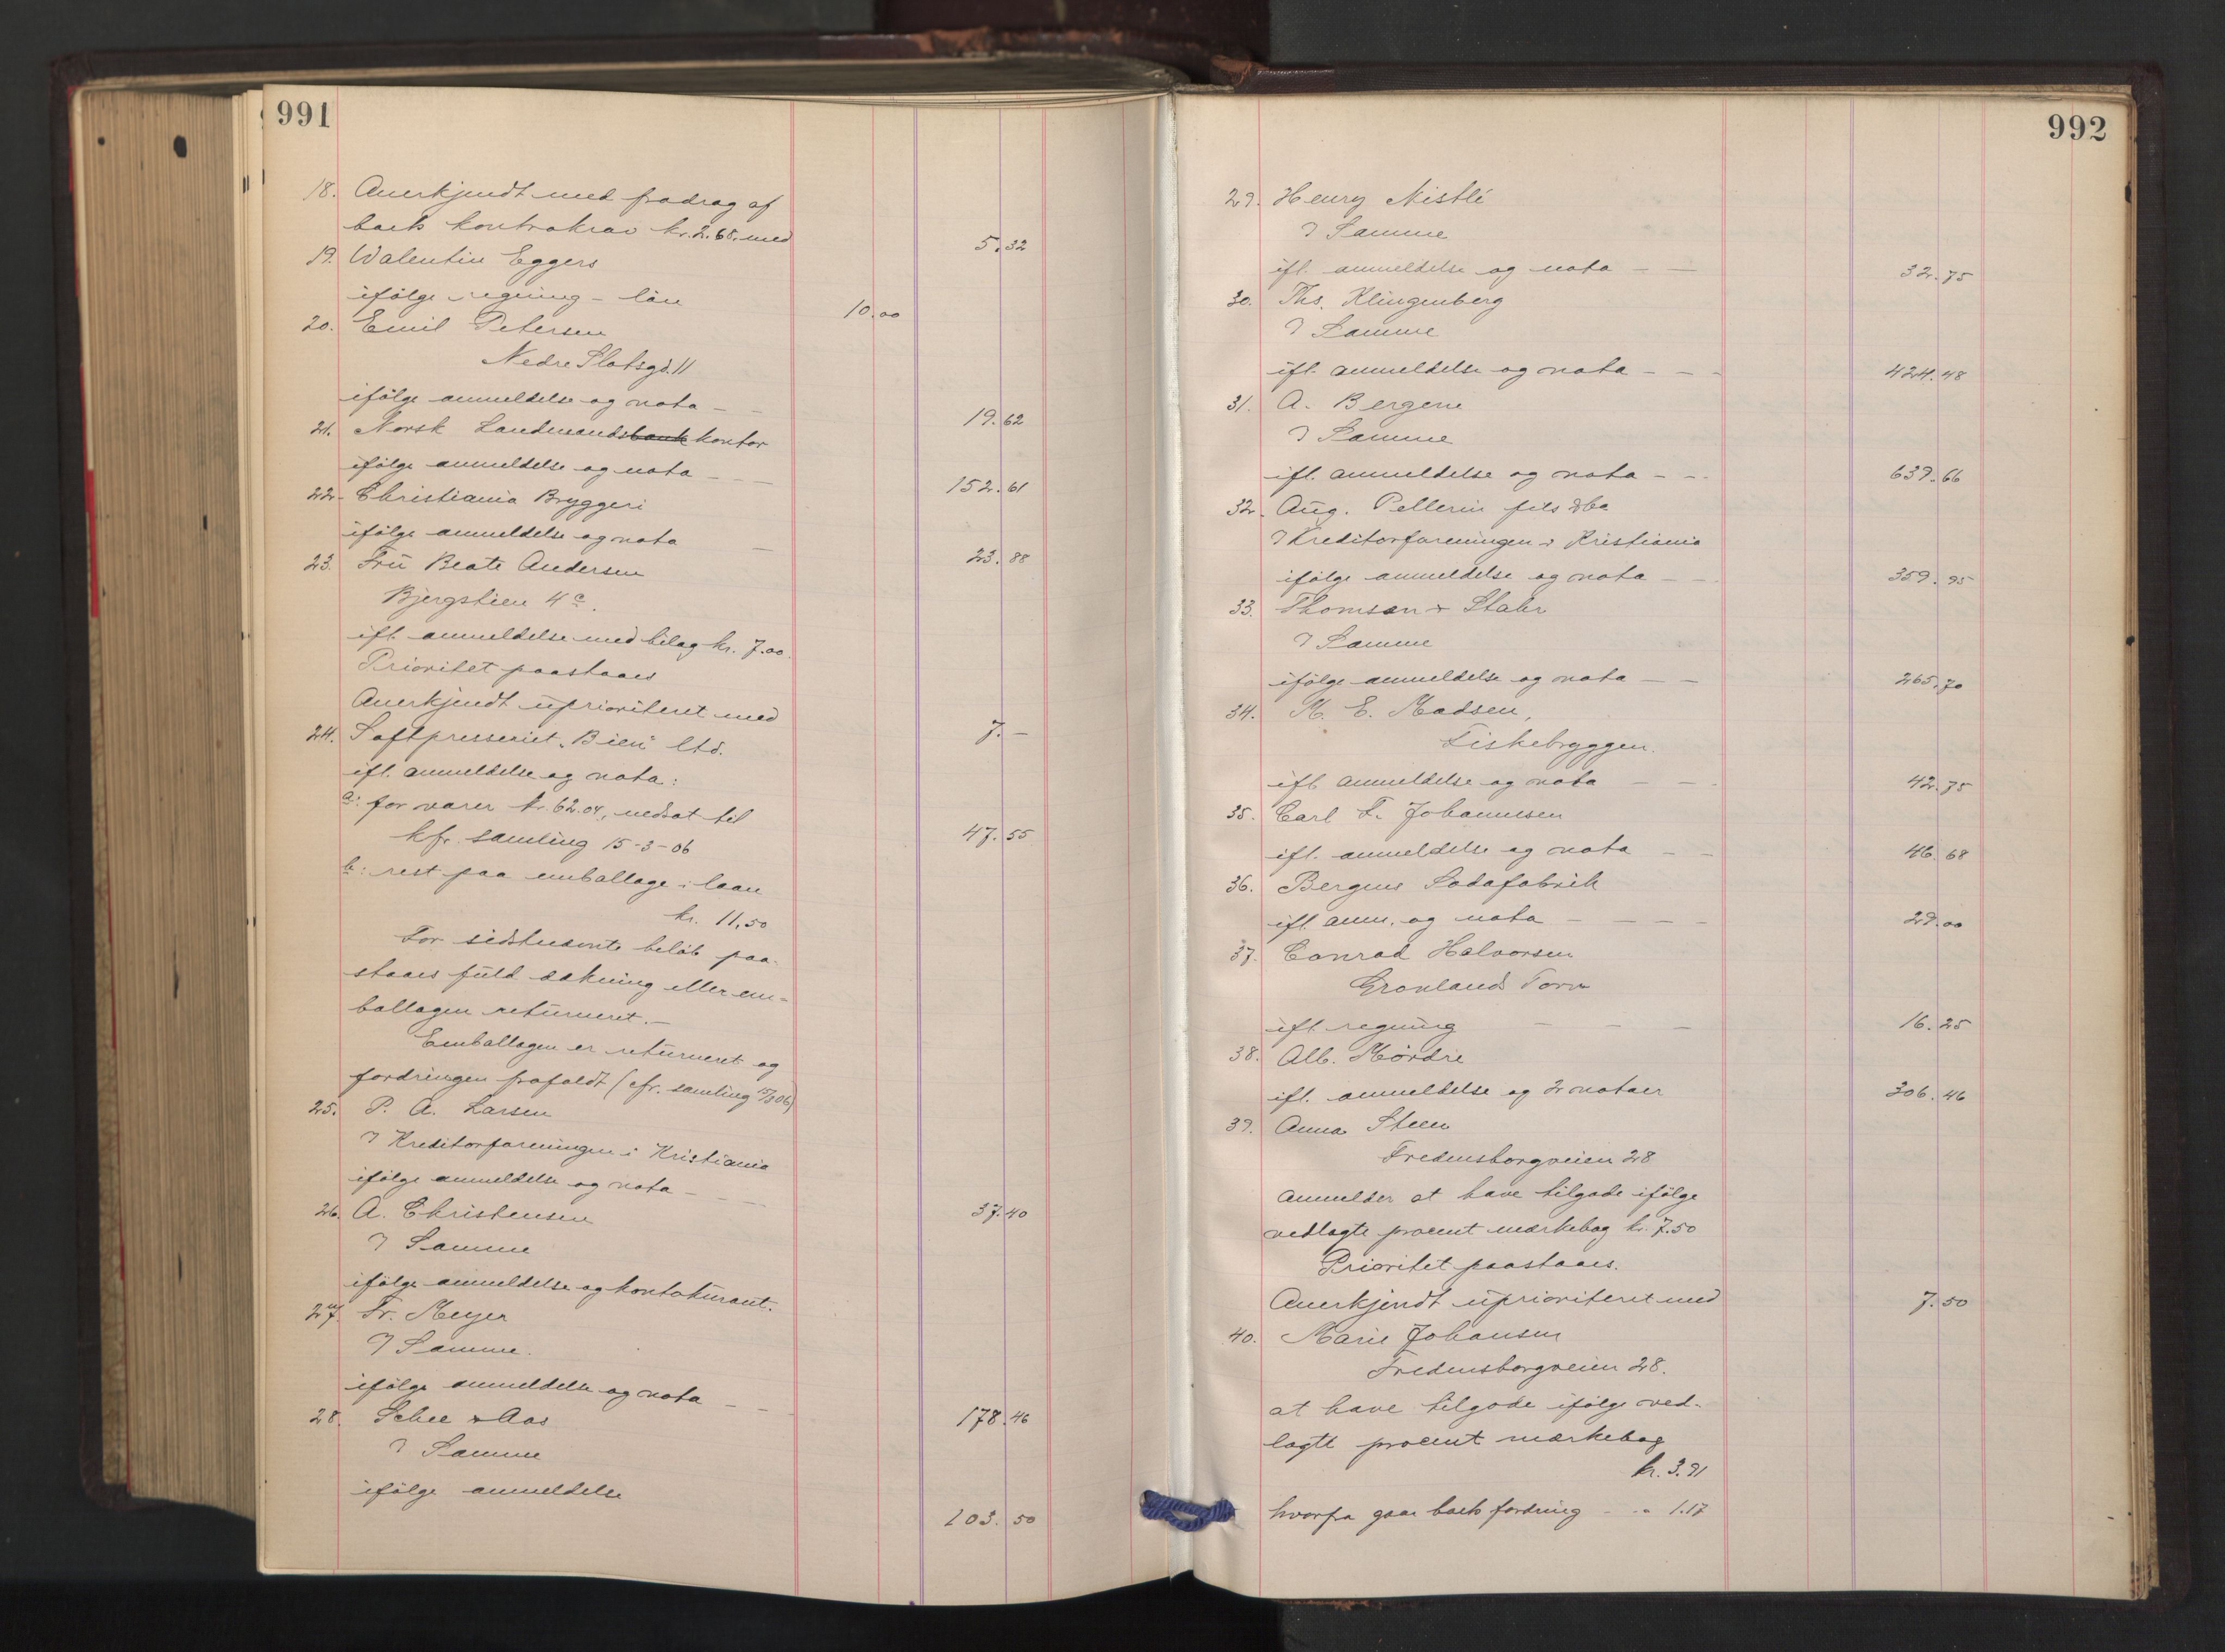 991
18. Anerkjendt med fradrag af
boets kontrakrav kr. 2.68, med 5.32
19. Valentin Eggers
ifølge regning - lån 10.00
20. Emil Petersen
Nedre Slotsgd. 11
ifølge anmeldelse og nota - - 19.62
21. Norsk Landmandsbank kontor
ifølge anmeldelse og nota - - - 152.61
22. Christiania Bryggeri
ifølge anmeldelse og nota - 23.88
23. Frü Beate Andersen
Bjergstien 4c.
ifl. anmeldelse med bilag kr. 7.00.
Prioritet paastaaes
Anerkjendt uprioriteret med 7.-
24. Saftpresseriet "Bien" Ltd.
ifl. anmeldelse og nota:
a: for varer kr. 62.04, nedsat til 47.55
kfr. samling 15-3-06
b: rest paa emballage i laan
kr. 11,50
For sidstnævnte beløb paa-
staaes fuld dækning eller em-
ballagen returneret.-
Emballagen er returneret og
fordringen frafaldt (cfr. samling 15/3 06)
25. P. A. Larsen
Kreditorforeningen i Kristiania
ifølge anmeldelse og nota - - - 37.40
26. A. Christensen
Samme
ifølge anmeldelse og kontokurant.
27. Fr. Meyer
Samme.
ifølge anmeldelse og nota - - 178.46
28. Schee & Aas
Samme
ifølge anmeldelse 103.50
992
29. Henry Nistlé
Samme
ifl. anmeldelse og nota - - 32.75
30. Ths. Klingenberg
Samme
ifl. anmeldelse og nota - - - 424.48
31. A. Bergene
Samme
ifl. anmeldelse og nota - - 639.66
32. Aug. Pellerin fils & Co
Kreditorforeningen i Kristiania
ifølge anmeldelse og nota - - 359.95
33. Thomsen & Stabr
Samme
ifølge anmeldelse og nota - - 265.70
34. M. E. Madsen,
Fiskebryggen.
ifl. anmeldelse og nota - - - 42.75
35. Carl F. Johannesen
ifl. anmeldelse og nota - - 46.68
36. Bergens Sodafabrik
ifl. anm. og nota - - - - 29.00
37. Conrad Halvorsen
Grønlands Torv
ifl. regning - - - 16.25
38. Alb. Mørdre
ifl. anmeldelse og 2 notaer 306.46
39. Anna Steen
Fredensborgveien 28
anmelder at have tilgode ifølge
vedlagte procent mærkebog kr. 7.50
Prioritet paastaaes.
Anerkjendt uprioriteret med 7.50
40. Marie Johansen
Fredensborgveien 28.
at have tilgode ifølge ved-
lagte procent mærkebog
kr. 3.91
hvorfra gaar boets fordring - " 1.17